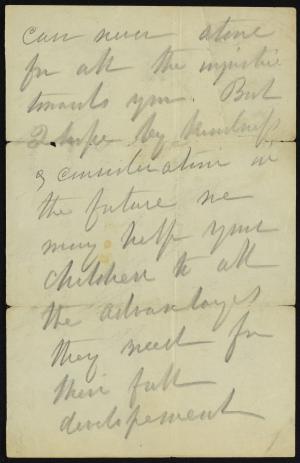 can never atone
for all the injustice
towards you. But
I hope by kindness
& consideration in
the future we
may help your
children to all
the advantages
they need for
their full
developement